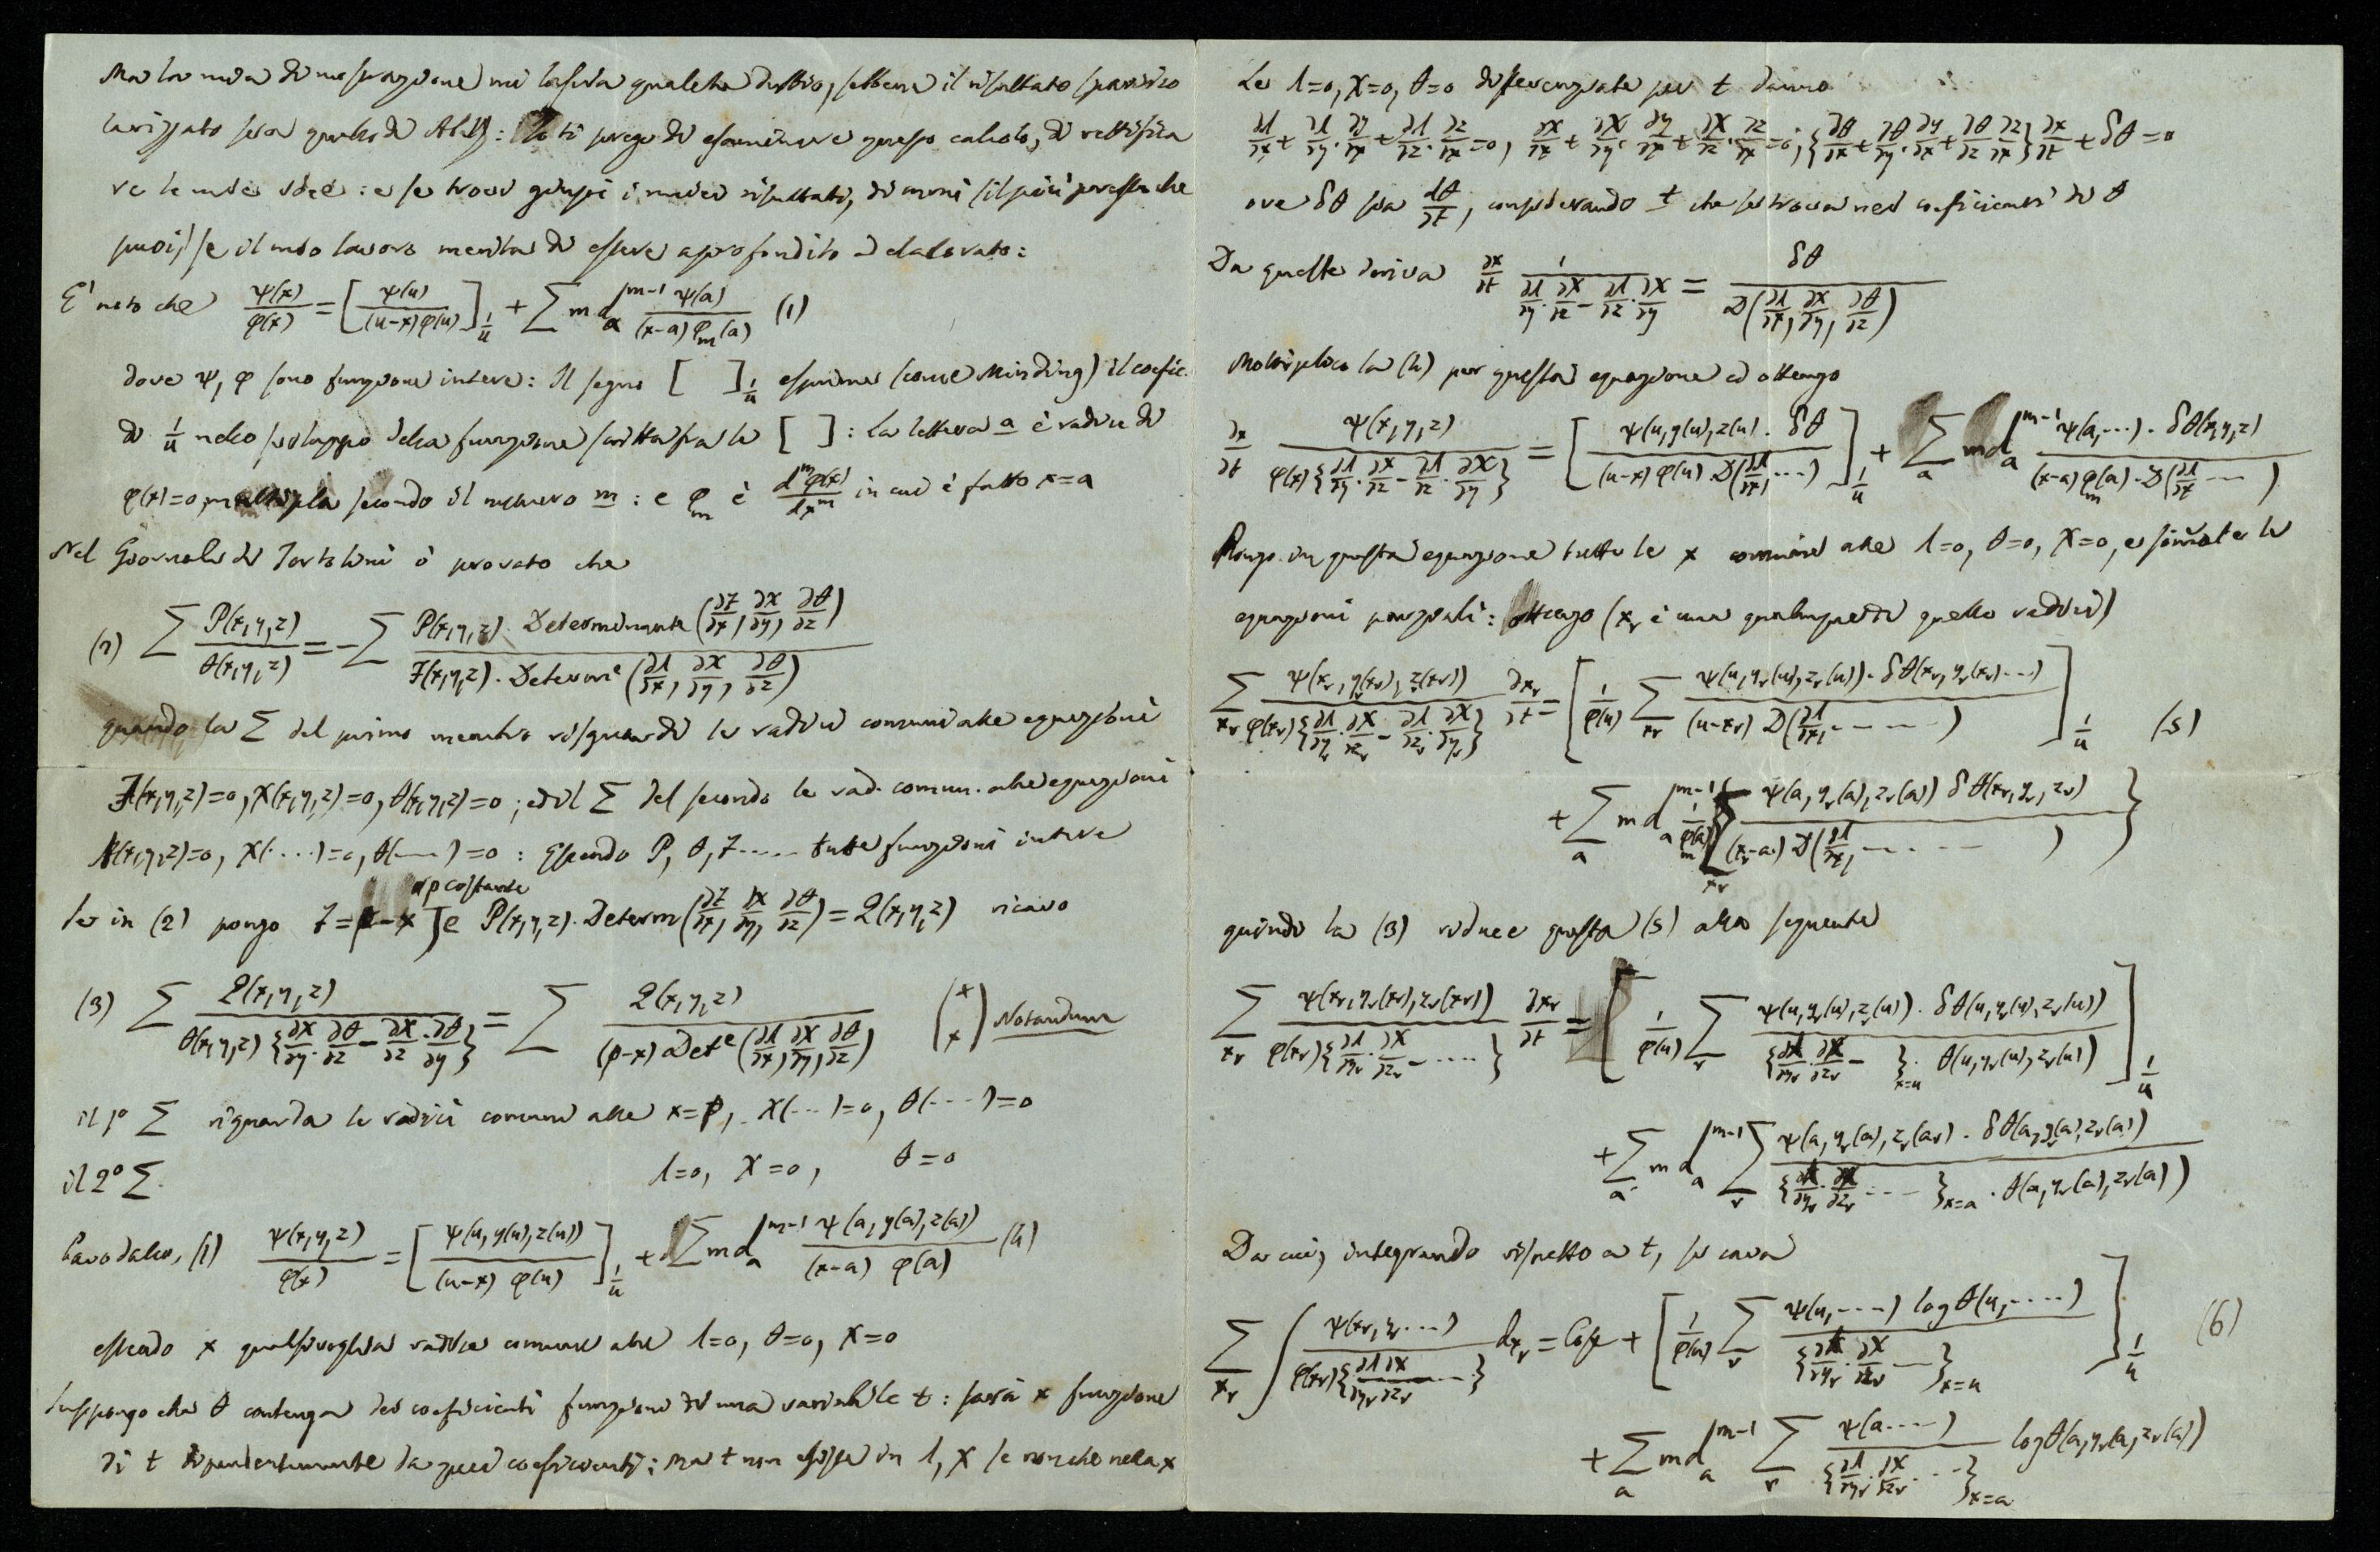 Ma la mia disposizione mi lascia qualche dubbio, sebbene il risultato partico
larizzato sia quello di Abel: Io ti prego di esaminare questo calcolo, di rettifica
re le mie idee: e se trovi giusti i miei risultati, dimmi (il più presto che
puoi) se il mio lavoro merita di essere aprofondito ed elaborato:
E' noto che ψ(x)/φ(x) = [ψ(u)/((u-x)φ(u))]_{1/u} + Σ m d_a^{m-1} ψ(a)/((x-a)φ_m(a)) (1)
dove ψ, φ sono funzione intere: Il segno [ ]_{1/u} esprime (come Minding) il coefic.
di 1/u nello sviluppo della funzione scritta fra le [ ]: La lettera a è radice di
φ(x)=0, multipla secondo il numero m: e φ_m è d^mφ(x)/dx^m in cui è fatto x=a
Nel Giornale di Tortolini è provato che
(2) Σ P(x,y,z)/θ(x,y,z) = -Σ P(x,y,z). Determinante(∂F/∂x, ∂X/∂y, ∂θ/∂z) / F(x,y,z). Determ^e(∂Λ/∂x, ∂X/∂y, ∂θ/∂z)
quando la Σ del primo membro risguardi le radici comuni alle equazioni
F(x,y,z)=0, X(x,y,z)=0, θ(x,y,z)=0; ed il Σ del secondo le rad. comun. alle equazioni
Λ(x,y,z)=0, X(....)=0, θ(....)=0: Essendo P, θ, F..... tutte funzioni intere
p costante
Se in (2) pongo F=p-x e P(x,y,z). Determ(∂F/∂x, ∂X/∂y, ∂θ/∂z) = Q(x,y,z) ricavo
(3) Σ Q(x,y,z)/θ(x,y,z){∂X/∂y.∂θ/∂z - ∂X/∂z.∂θ/∂y} = Σ Q(x,y,z)/(p-x) Det^e(∂Λ/∂x, ∂X/∂y, ∂θ/∂z) (x x) Notandum
il 1° Σ riguarda le radici comuni alle x=p, X(...)=0, θ(...)=0
il 2° Σ. Λ=0, X=0, θ=0
Cavo dalla (1) ψ(x,y,z)/φ(x) = [ψ(u,y(u),z(u))/((u-x) φ(u))]_{1/u} + Σ m d_a^{m-1} ψ(a,y(a),z(a))/((x-a) φ(a)) (4)
essendo x qualsivoglia radice comune alle Λ=0, θ=0, X=0
Suppongo che θ contenga dei coeficienti funzioni di una variabile t: sarà x funzione
di t dipendentemente da quei coeficienti; ma t non esista in Λ, X se non che nella x
Le Λ=0, X=0, θ=0 differenziate per t danno
∂Λ/∂x + ∂Λ/∂y.∂y/∂x + ∂Λ/∂z.∂z/∂x=0, ∂X/∂x + ∂X/∂y.∂y/∂x + ∂X/∂z.∂z/∂x=0, {∂θ/∂x + ∂θ/∂y.∂y/∂x + ∂θ/∂z.∂z/∂x}∂x/∂t + δθ=0
ove δθ sia dθ/∂t, considerando t che si trova nei coeficienti di θ
Da queste deriva ∂x/∂t 1/(∂Λ/∂y.∂X/∂z - ∂Λ/∂z.∂X/∂y) = δθ/D(∂Λ/∂x, ∂X/∂y, ∂θ/∂z)
Moltiplico la (4) per questa equazione ed ottengo
∂x/∂t ψ(x,y,z)/φ(x){∂Λ/∂y.∂X/∂z - ∂Λ/∂z.∂X/∂y} = [ψ(u,y(u),z(u)). δθ/((u-x) φ(u) D(∂Λ/∂x,...))]_{1/u} + Σ_a m d_a^{m-1} ψ(a,...). δθ(x,y,z)/((x-a) φ_m(a). D(∂Λ/∂x ...))
Pongo in questa equazione tutte le x comuni alle Λ=0, θ=0, X=0, e sommate le
equazioni parziali: ottengo (x_r è una qualunque di quelle radici)
Σ_{x_r} ψ(x_r, y_r(x_r), z_r(x_r))/φ(x_r){∂Λ/∂y_r.∂X/∂z_r - ∂Λ/∂z_r.∂X/∂y_r} ∂x_r/∂t = [1/φ(u) Σ_{x_r} ψ(u,y_r(u),z_r(u)). δθ(x_r, y_r(x_r)...)/((u-x_r) D(∂Λ/∂x,....))]_{1/u} (5)
+ Σ_a m d_a^{m-1} 1/φ_m(a) Σ_{x_r} ψ(a,y_r(a),z_r(a)) δθ(x_r,y_r,z_r)/((x_r-a) D(∂Λ/∂x,.... )) }
quindi la (3) riduce questa (5) alla seguente
Σ_{x_r} ψ(x_r,y_r(x_r),z_r(x_r))/φ(x_r){∂Λ/∂y_r.∂X/∂z_r - ....} ∂x_r/∂t = [1/φ(u) Σ_r ψ(u,y_r(u),z_r(u)). δθ(u,y_r(u),z_r(u))/{∂Λ/∂y_r.∂X/∂z_r - }_{x=u}. θ(u,y_r(u),z_r(u))]_{1/u}
+ Σ_a m d_a^{m-1} Σ_r ψ(a,y_r(a),z_r(a)). δθ(a,y_r(a),z_r(a))/{∂Λ/∂y_r.∂X/∂z_r ...}_{x=a}. θ(a,y_r(a),z_r(a))
Da cui, integrando rispetto a t, si cava
Σ_{x_r} ∫ ψ(x_r,y_r....)/φ(x_r){∂Λ/∂y_r ∂X/∂z_r ...} dx_r = Cost + [1/φ(u) Σ_r ψ(u,....) log θ(u,....)/{∂Λ/∂y_r.∂X/∂z_r ...}_{x=u}]_{1/u} (6)
+ Σ_a m d_a^{m-1} Σ_r ψ(a....)/{∂Λ/∂y_r.∂X/∂z_r ...}_{x=a} log θ(a,y_r(a),z_r(a))